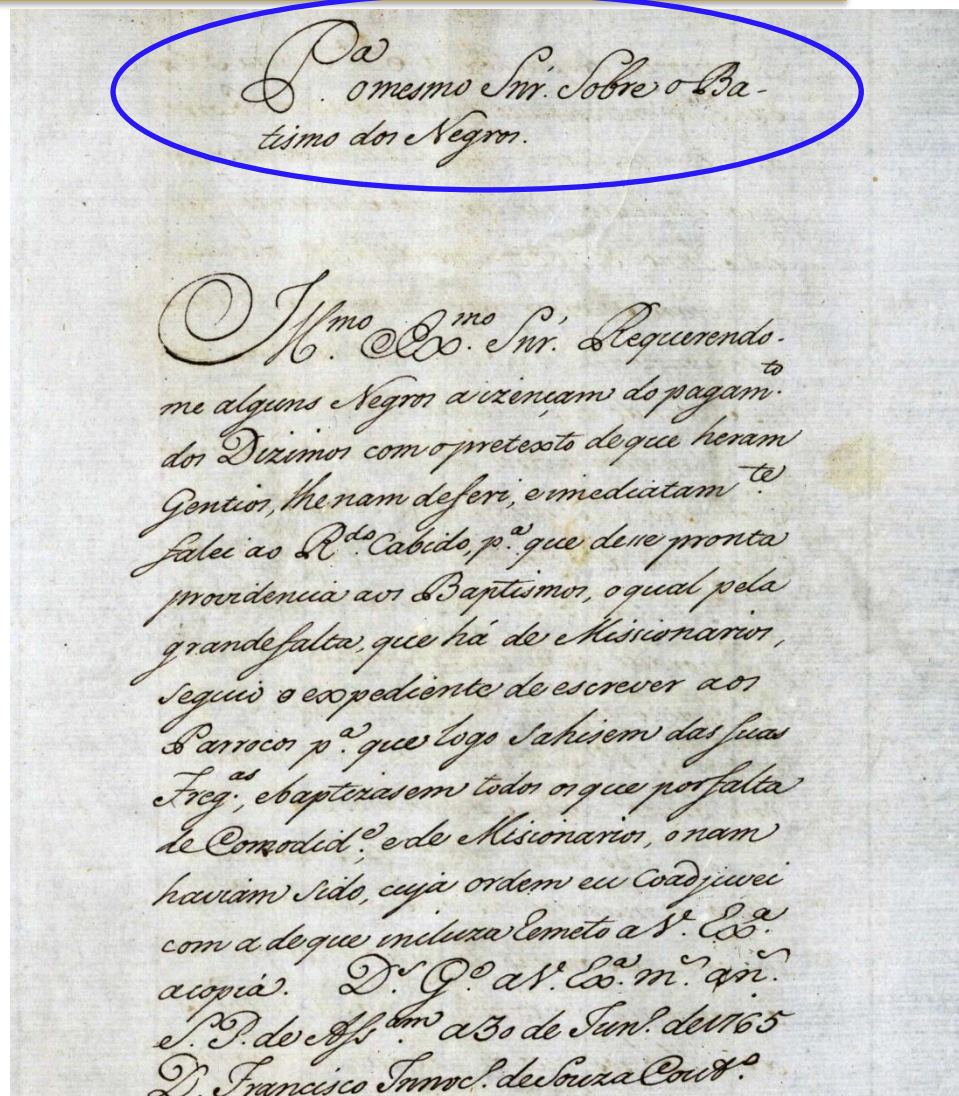 P.ª
o mesmo Snr. Sobre o Ba-
tismo dos Negros.
Ill.mo e Ex.mo Snr. Requerendo-
me alguns Negros a izençam do pagam.to
dos Dizimos com o pretexto de que heram
Gentios, lhe nam deferi, e imediatam.te
falei ao R.do Cabido, p.ª que desse pronta
providencia aos Baptismos, o qual pela
grande falta, que há de Missionarios,
seguio o expediente de escrever aos
Parrocos p.ª que logo sahisem das suas
Freg.as, e baptizasem todos os que por falta
de Comodid.e, e de Misionarios, o nam
haviam sido, cuja ordem eu Coadjuvei
com a de que incluza Remeto a V. Ex.ª
a copiá. D.s G.e a V. Ex.ª m.s an.s
S. P. de Ass.am a 30 de Jun.º de 1765
D. Francisco Innoc.º de Souza Cout.º